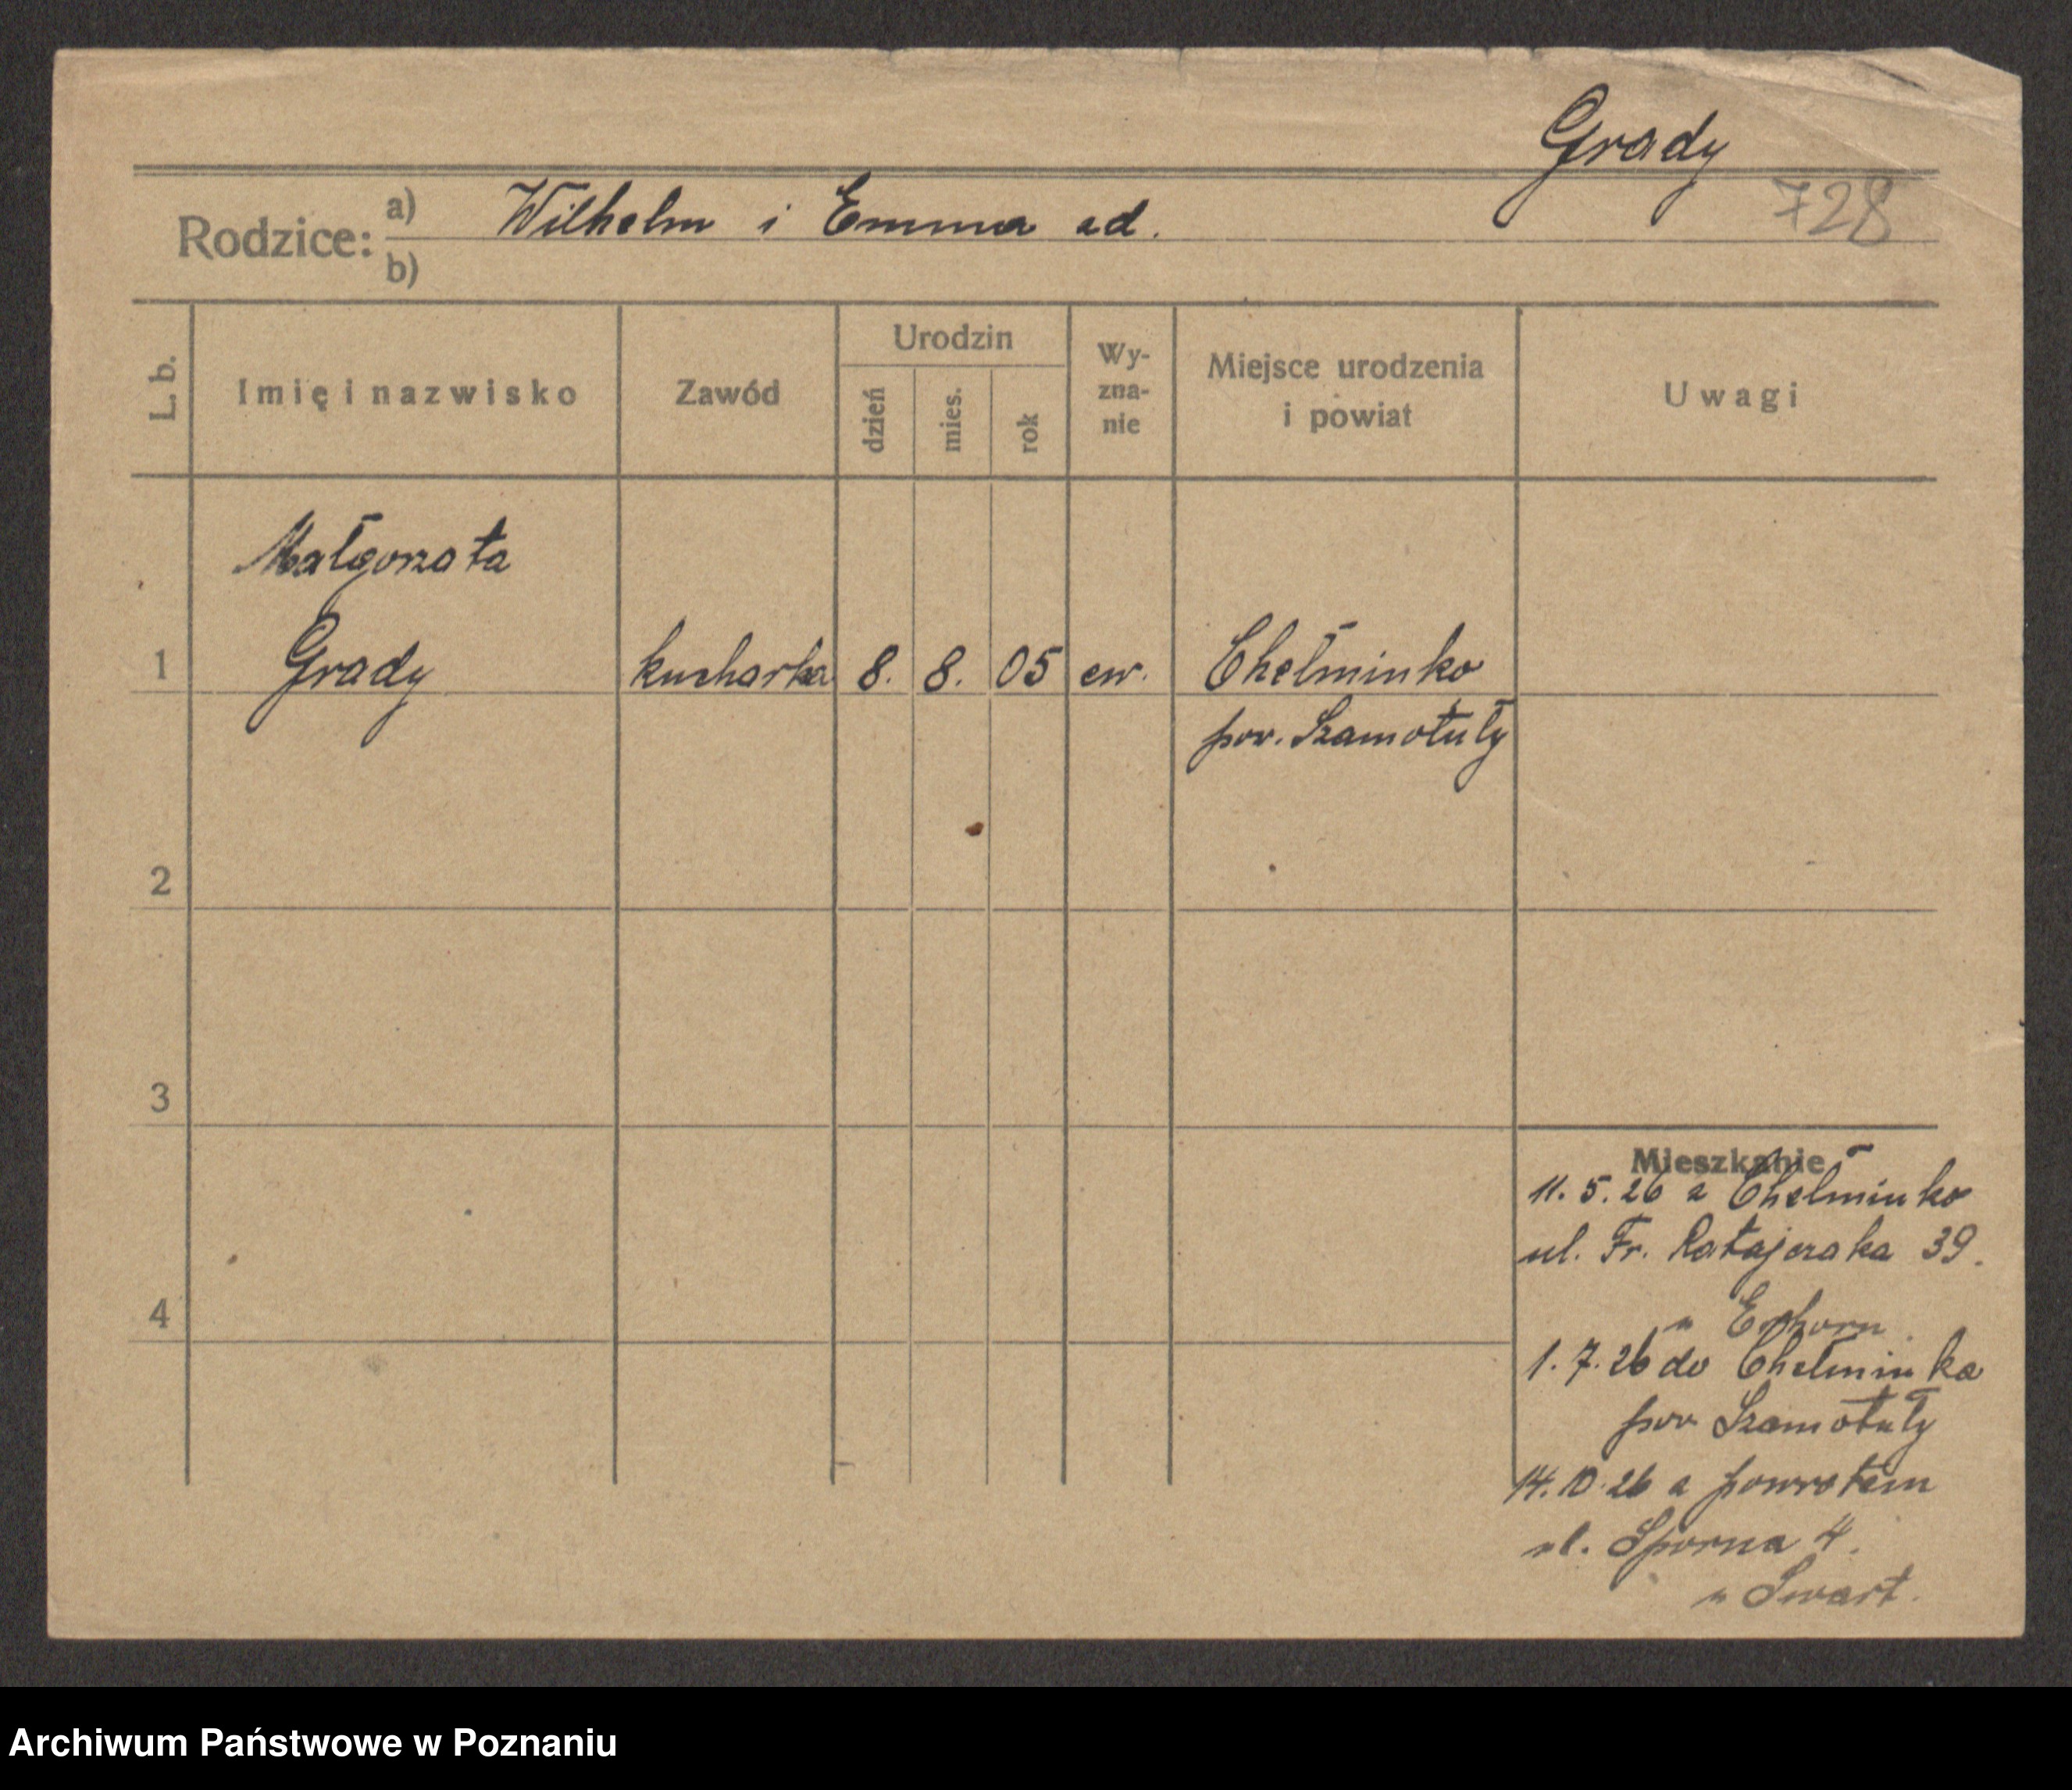 Grady
728
Rodzice: a) Wilhelm i Emma ad.
b)
L. b.
Imię i nazwisko
Zawód
Urodzin
dzień
mies.
rok
Wy-
zna-
nie
Miejsce urodzenia
i powiat
Uwagi
Małgorzata
1 Grady kucharka 8. 8. 05 ew. Chełminko
pow. Szamotuły
2
3
4
Mieszkanie
11. 5. 26 z Chełminko
ul. Fr. Ratajczaka 39.
1. 7. 26 do Chełminka
pow Szamotuły
14. 10. 26 z powrotem
ul. Sporna 4.
u Swart.
Archiwum Państwowe w Poznaniu